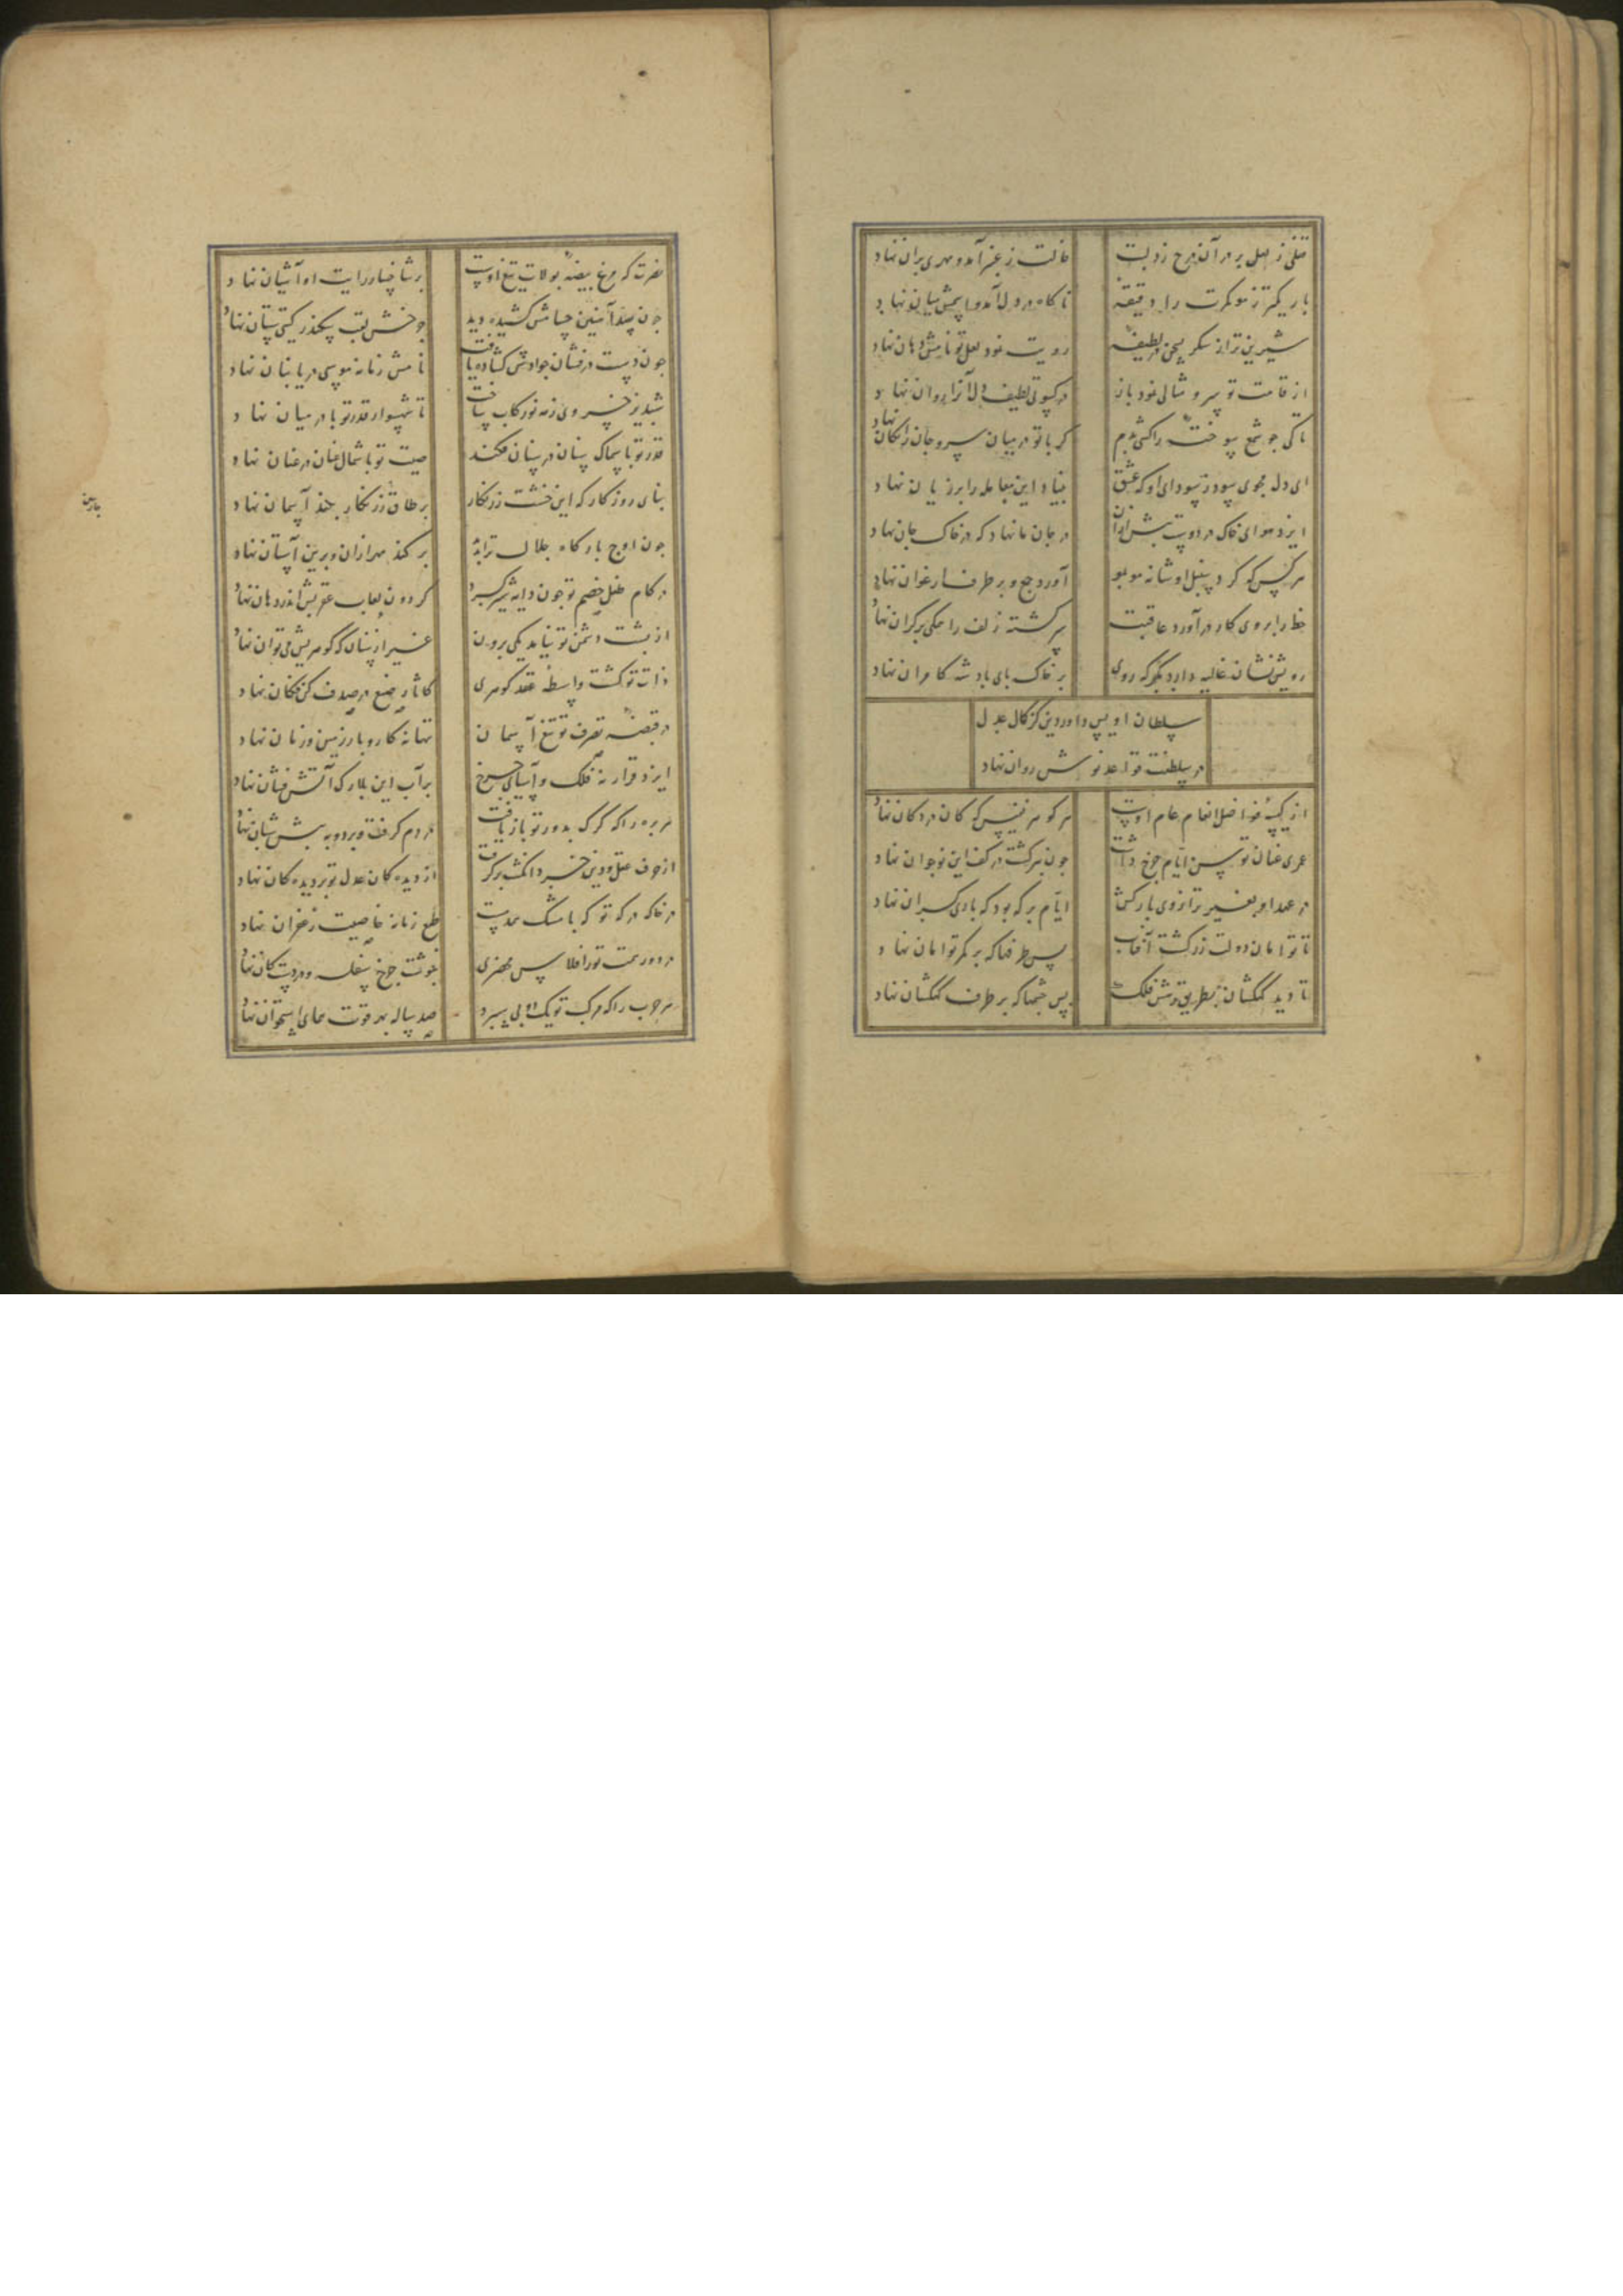 قفلی ز لعل بر در آن درج زد لبت خالت ز عنبر آمد و مهری بران نهاد
باریکتر ز مو کمرت را دقیقهٔ ناکاه در دل آمد و اسمش میان نهاد
شیرین تر از شکر سخنی لطیفهٔ رویت نمود لعل تو نامش دهان نهاد
از قامت تو سرو مثالی نمود باز در کسوتی لطیف دل آنرا روان نهاد
تا کی جو شمع سوختهٔ را کشی بدم کر با تو در میان سر و جان رایکان نهاد
ای دل مجوی سود ز سودای او که عشق بنیاد این معامله را بر زیان نهاد
ایزد هوای خاک در دوست بیش ازان در جان ما نهاد که در خاک جان نهاد
هرکس که کرد سنبل او شانه مو بمو آورد جمع و بر طرف ارغوان نهاد
خط را بروی کار درآورد عاقبت سرکشته زلف را همکی بر کران نهاد
رویش نشان غالیه دارد مکر که روی بر خاک پای بادشه کامران نهاد
سلطان اویس داور دین کز کمال عدل
در سلطنت قواعد نوشروان نهاد
از کیسهٔ فواضل انعام عام اوست هر کوهر نفیس که کان در دکان نهاد
عمری عنان توسن ایام جرخ داشت جون بیر کشت در کف این نوجوان نهاد
در عهد او بغیر ترازوی بارکش ایام بر که بود که باری کران نهاد
تا توامان دولت زر کشت آفتاب بس طرفها که بر کمر توامان نهاد
تا دید کهکشان بطریق وشش فلک بس چشمها که بر طرف کهکشان نهاد
نصرت که مرغ بیضهٔ بولاد تیغ اوست بر شاخسار رایت او آشیان نهاد
جون سد آهنین حسامش کشیده دید خوش لقب سکندر کیتی ستان نهاد
جون دست درفشان جوادش کشاده یافت نامش زمانه موسی دریا بنان نهاد
شبدیز خسروی ز مه نو رکاب ساخت تا شهسوار قدر تو با در میان نهاد
قدر تو با سماک سنان در سنان فکند صیت تو با شمال عنان در عنان نهاد
بنای روزکار که این خشت زرنکار بر طاق زرنکار بلند آسمان نهاد
جون اوج بارکاه جلال ترا بدید برکند مهر ازان و برین آستان نهاد
در کام طفل خصم تو جون دایه شیر کرد کردون لعاب عقربش اندر دهان نهاد
از بشت دشمن تو نیامد یکی برون غیر از سنان که کوهریش می توان نهاد
ذات تو کشت واسطهٔ عقد کوهری کاثار صنع در صدف کن فکان نهاد
در قبضهٔ تصرف تو تیغ آسمان تنها نه کار و بار زمین و زمان نهاد
ایزد قرار نه فلک و آسیای جرخ بر آب این بلارک آتش فشان نهاد
هر بره را که کرک بدور تو باز یافت در دم کرفت و برد و به بیش شبان نهاد
از حرف عقل و دین خرد انکشت بر کرفت از دیده کان عدل تو بر دیده کان نهاد
در خاک درکه تو که با مشک همدمست طبع زمانه خاصیت زعفران نهاد
در دور همت تو ز افلاس محضری بنوشت جرخ سفله و در دست کان نهاد
هر جرب را که مرک تو یک اه بی سبرد صد ساله بهر قوت همای استخوان نهاد